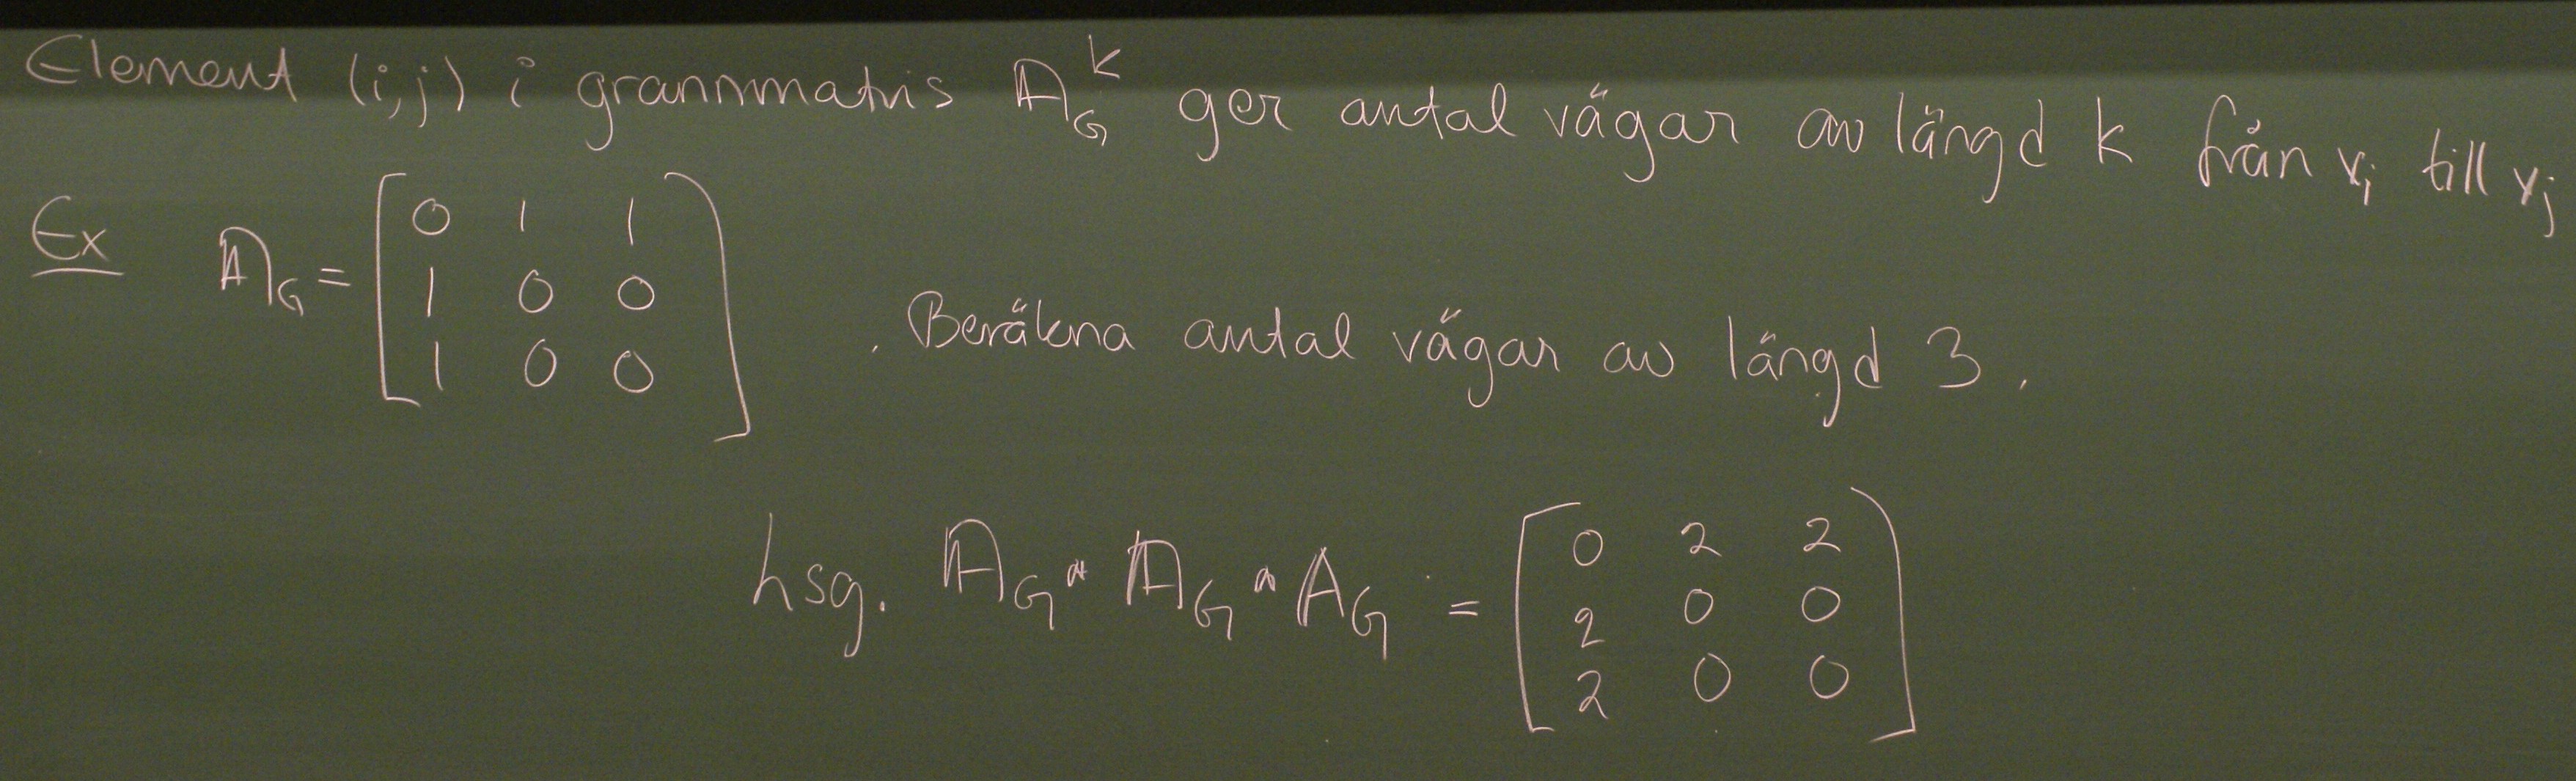 Element (i,j) i grannmatris A_G^k ger antal vägar av längd k från v_i till v_j
Ex A_G = [0 1 1
1 0 0
1 0 0] . Beräkna antal vägar av längd 3.
lsg. A_G · A_G · A_G = [0 2 2
2 0 0
2 0 0]